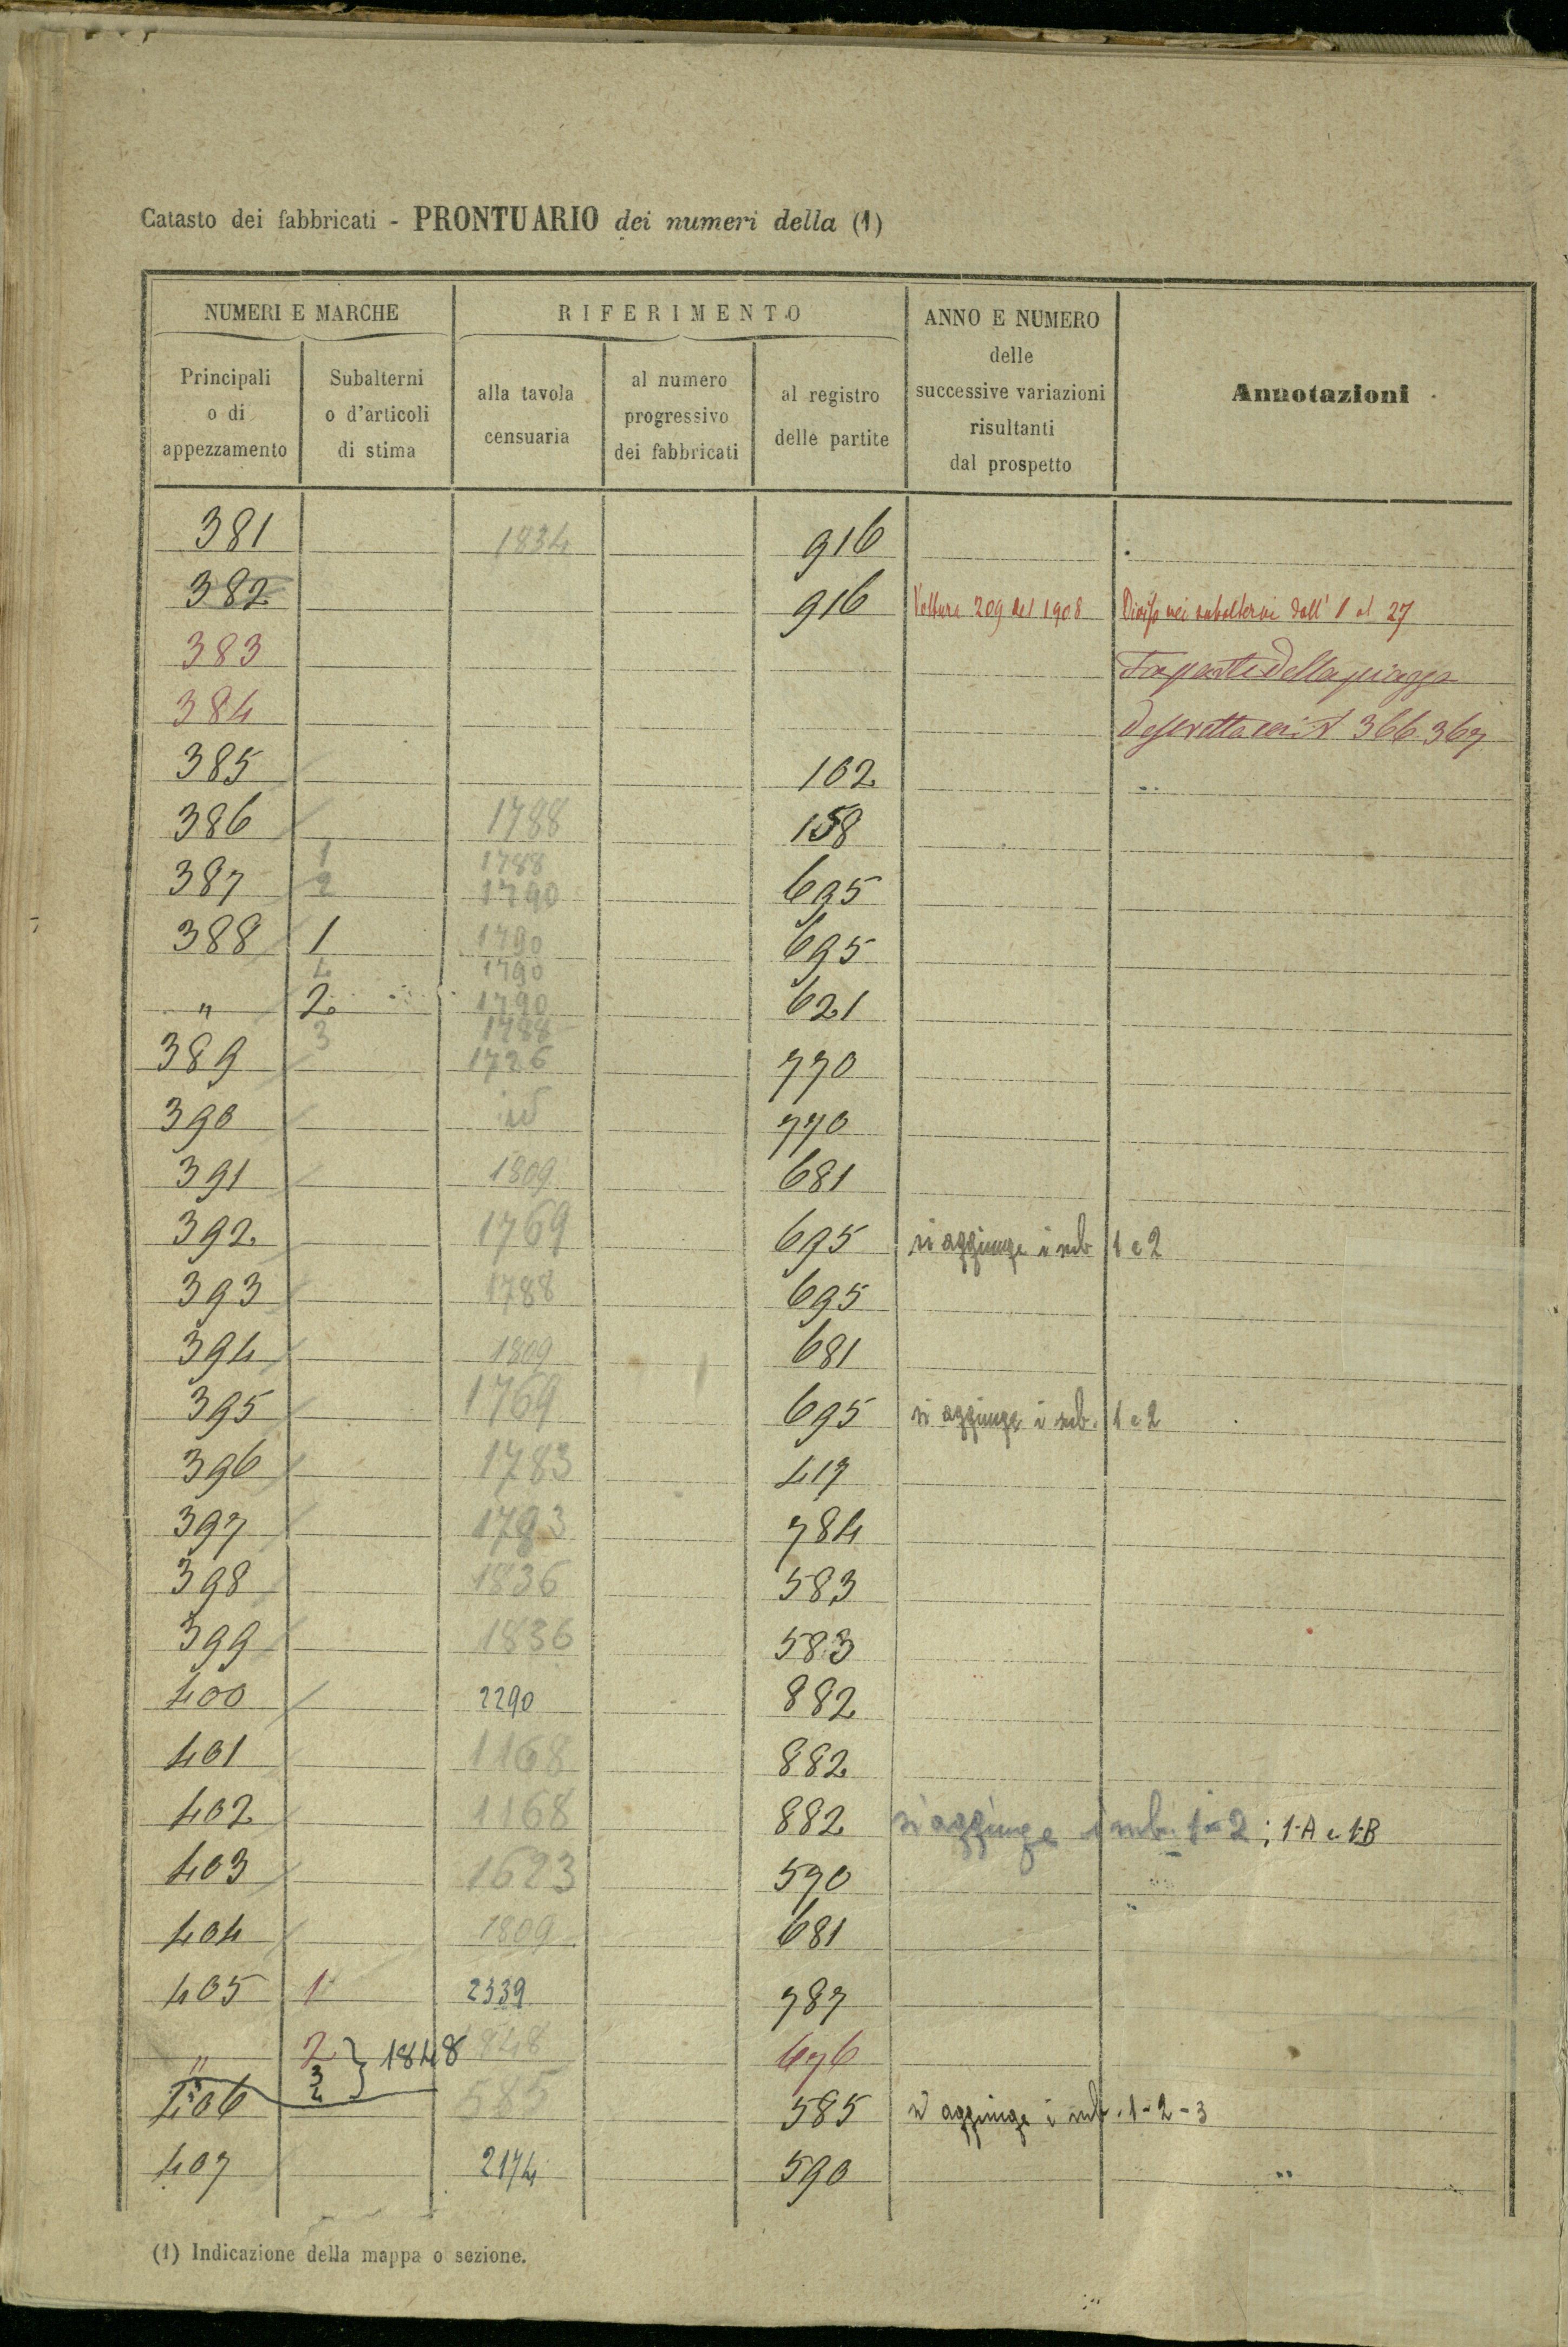 Catasto dei fabbricati - PRONTUARIO dei numeri della (1)
NUMERI E MARCHE
RIFERIMENTO
ANNO E NUMERO
delle
successive variazioni
risultanti
dal prospetto
Annotazioni
Principali
o di
appezzamento
Subalterni
o d'articoli
di stima
alla tavola
censuaria
al numero
progressivo
dei fabbricati
al registro
delle partite
381 1834 916
382 916 Voltura 209 del 1908 nei subalterni dall' 1 al 27
383 Fa parte della piazza
384 366 367
385 102
386 1788 158
1 1788
387 2 1790 695
388 1 1790 695
1790
" 2 1790 621
3 1788
389 1726 770
390 id 770
391 1809 681
392 1769 695 si aggiunge i sub 1 e 2
393 1788 695
394 1809 681
395 1769 695 si aggiunge i sub. 1 e 2
396 1783 417
397 1793 784
398 1836 583
399 1836 583
400 2290 882
401 1168 882
402 1168 882 si aggiunge i sub. 1 e 2 ; 1-A e 1-B
403 1623 590
404 1809 681
405 1 2339 787
" 2 1848 676
3
4
406 585 585 si aggiunge i sub. 1-2-3
407 2174 590
(1) Indicazione della mappa o sezione.